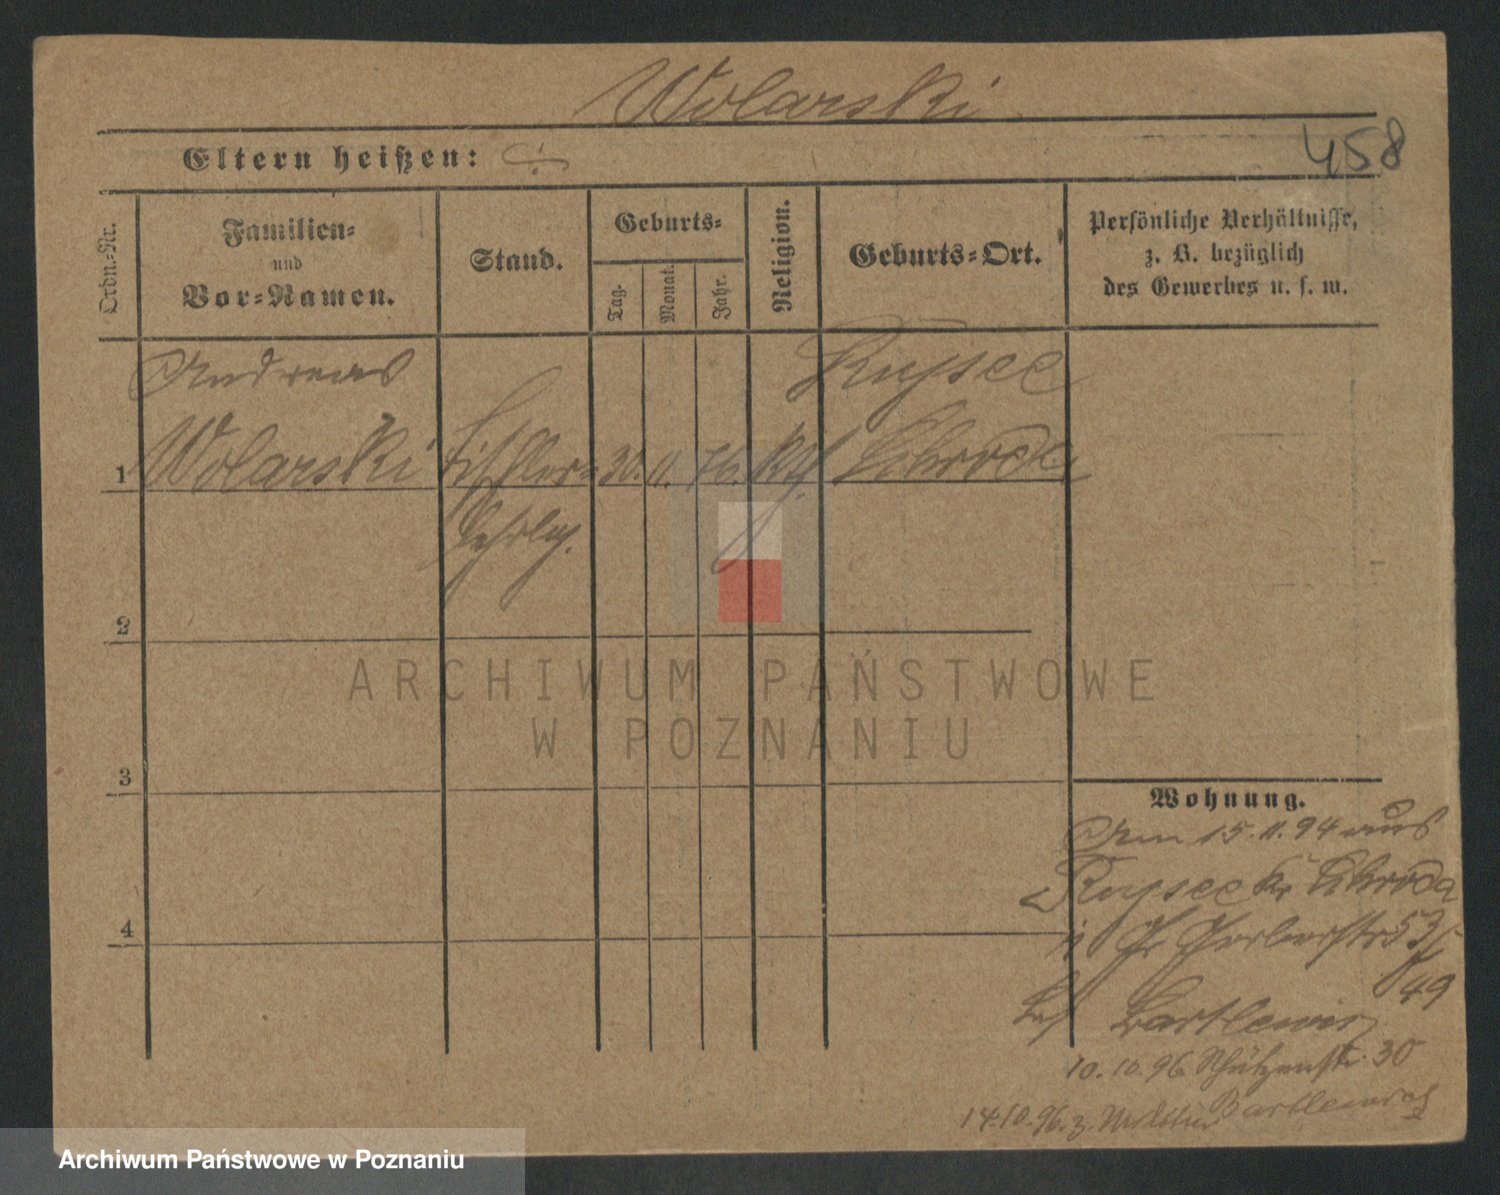 Wolarski
458
Eltern heißen:
Ordn.-Nr.
Familien-
und
Vor-Namen.
Stand.
Geburts-
Tag.
Monat.
Jahr.
Religion.
Geburts-Ort.
Persönliche Verhältnisse,
z. B. bezüglich
des Gewerbes u. s. w.
Andreas
1 Wolarski Tischler- 30. 11. 76. kth
Lehrlg.
2
3
4
Wohnung.
Am 15.11.94 aus
Kr
Gerberstr 53
49
bei Bartlewicz
10.10.96 Schützenstr. 30
14.10.96. z. Bartlewicz
ARCHIWUM PAŃSTWOWE
W POZNANIU
Archiwum Państwowe w Poznaniu